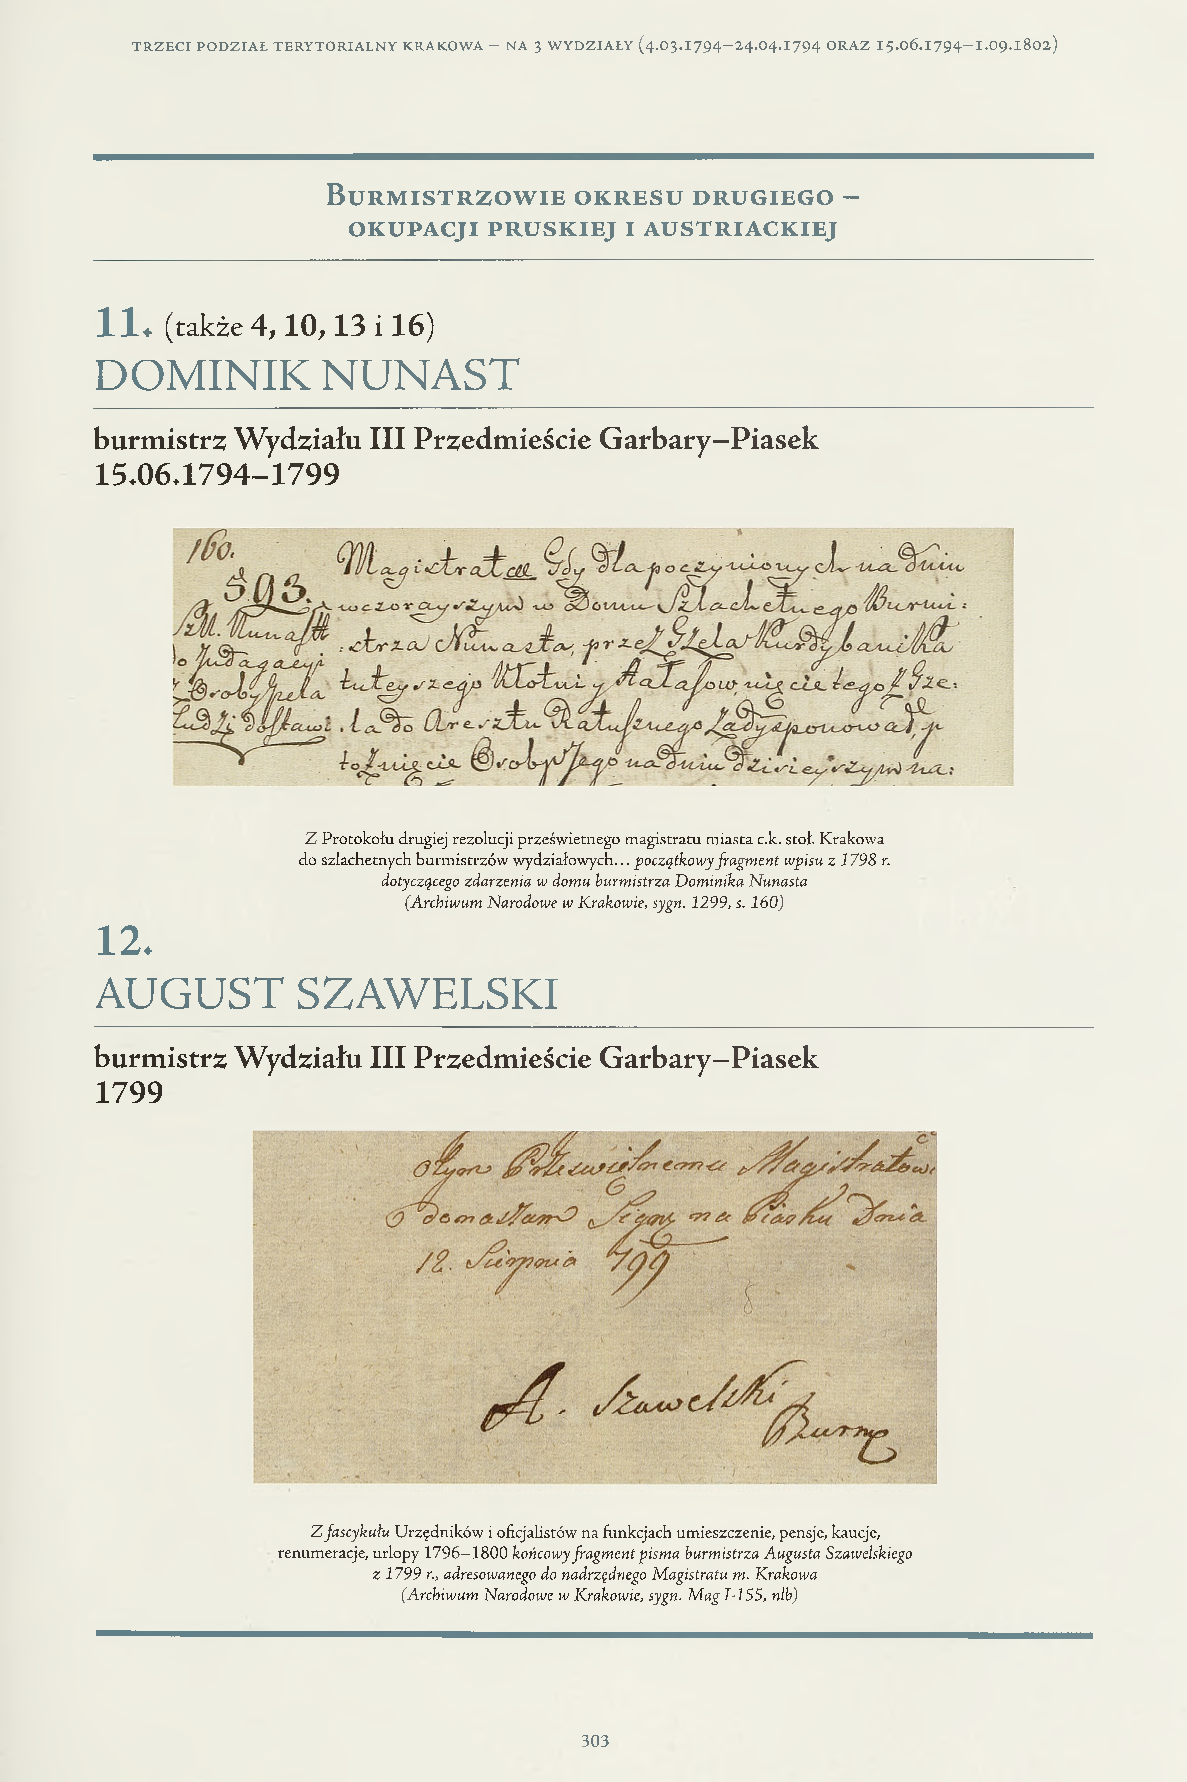 TRZECI PODZIAŁ TERYTORIALNY KRAKOWA – NA 3 WYDZIAŁY (4.03.1794–24.04.1794 ORAZ 15.06.1794–1.09.1802)
BURMISTRZOWIE OKRESU DRUGIEGO –
OKUPACJI PRUSKIEJ I AUSTRIACKIEJ
11. (także 4, 10, 13 i 16)
DOMINIK NUNAST
burmistrz Wydziału III Przedmieście Garbary–Piasek
15.06.1794–1799
160.
593.
Magistrat Gdy dla poczynionych na dniu
wczorayszym w Domu Szlachetnego Burmi:
Szl. Nunast
:strza Nunasta, przez Kurdybanika
do Indagacyi
tuteyszego Kłotni y Hałasow,
Ludzi dostawi
.la do Aresztu Ratusznego zadysponował,
Osoby Jego na dniu dzisieyszym na:
Z Protokołu drugiej rezolucji prześwietnego magistratu miasta c.k. stoł. Krakowa
do szlachetnych burmistrzów wydziałowych... początkowy fragment wpisu z 1798 r.
dotyczącego zdarzenia w domu burmistrza Dominika Nunasta
(Archiwum Narodowe w Krakowie, sygn. 1299, s. 160)
12.
AUGUST SZAWELSKI
burmistrz Wydziału III Przedmieście Garbary–Piasek
1799
Prześwietnemu Magistratowi
donaszam na Piasku Dnia
12. Sierpnia 799
A. Szawelski
Burm
Z fascykułu Urzędników i oficjalistów na funkcjach umieszczenie, pensje, kaucje,
renumeracje, urlopy 1796–1800 końcowy fragment pisma burmistrza Augusta Szawelskiego
z 1799 r., adresowanego do nadrzędnego Magistratu m. Krakowa
(Archiwum Narodowe w Krakowie, sygn. Mag I-155, nlb)
303